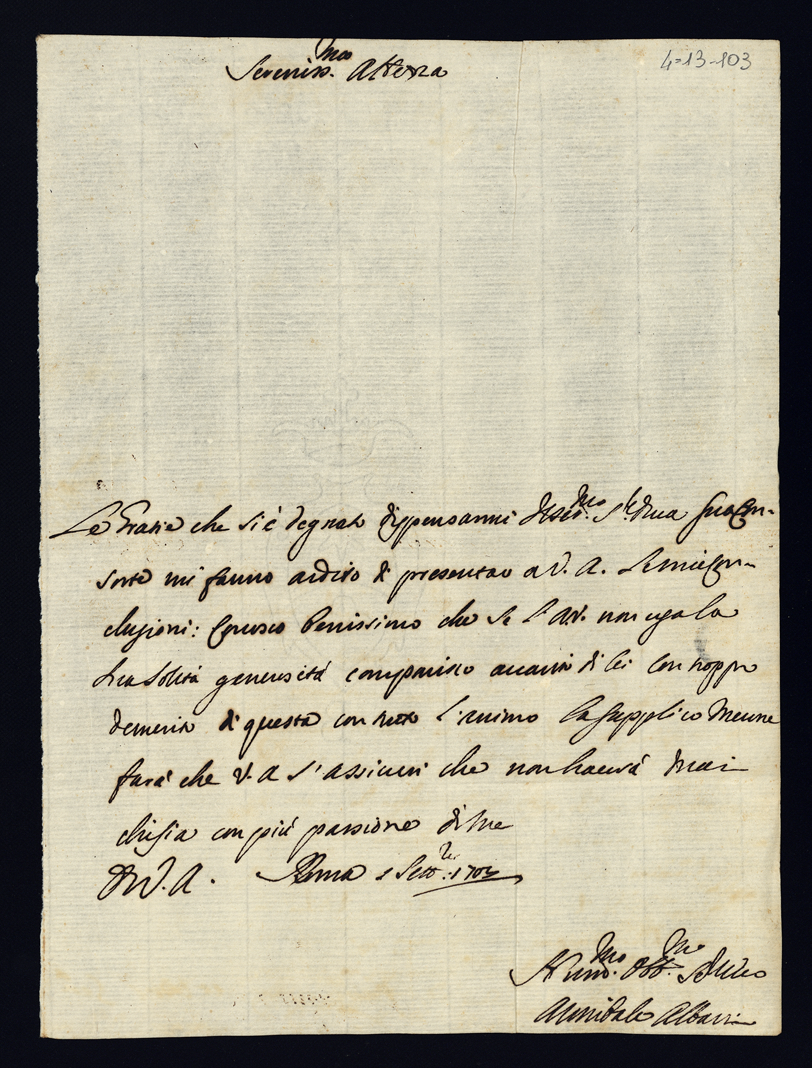 4-13-103
Sereniss.ma Altezza
Le Grazie che si è degnato dispensarmi il Ser.mo S.r Duca suo Con-
sorte mi fanno ardito di presentar a V. A. le mie Con-
clusioni: Conosco benissimo che se l'A.V. non usa la
sua solita generosità comparisco avanti di lei con troppo
demerito di questa con tutto l'animo la supplico me ne
farà che V. A s'assicuri che non haverà mai
chi sia con più passione di me
D V. A. Roma 1 Sett.re 1703
Hum.mo Obb.mo Servo
Annibale Albani